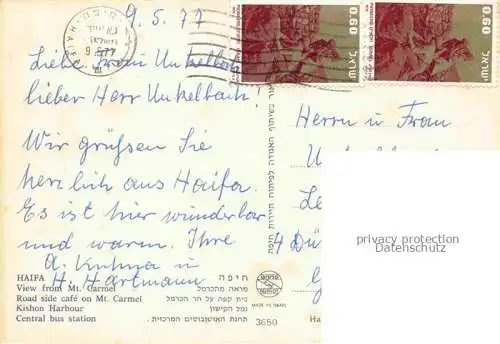 9.5.77
Liebe Frau Unkelbach,
lieber Herr Unkelbach!
Wir grüßen Sie
herzlich aus Haifa.
Es ist hier wunderbar
und warm. Ihre
A. Kuhna u
H. Hartmann
HAIFA
View from Mt. Carmel
Road side café on Mt. Carmel
Kishon Harbour
Central bus station
חיפה
מראה מהכרמל
בית קפה על הר הכרמל
נמל הקישון
תחנת האוטובוסים המרכזית.
MADE IN ISRAEL
3650
0.60
0.60
ISRAEL
Herrn u Frau
4 Dü
privacy protection
Datenschutz
Ha